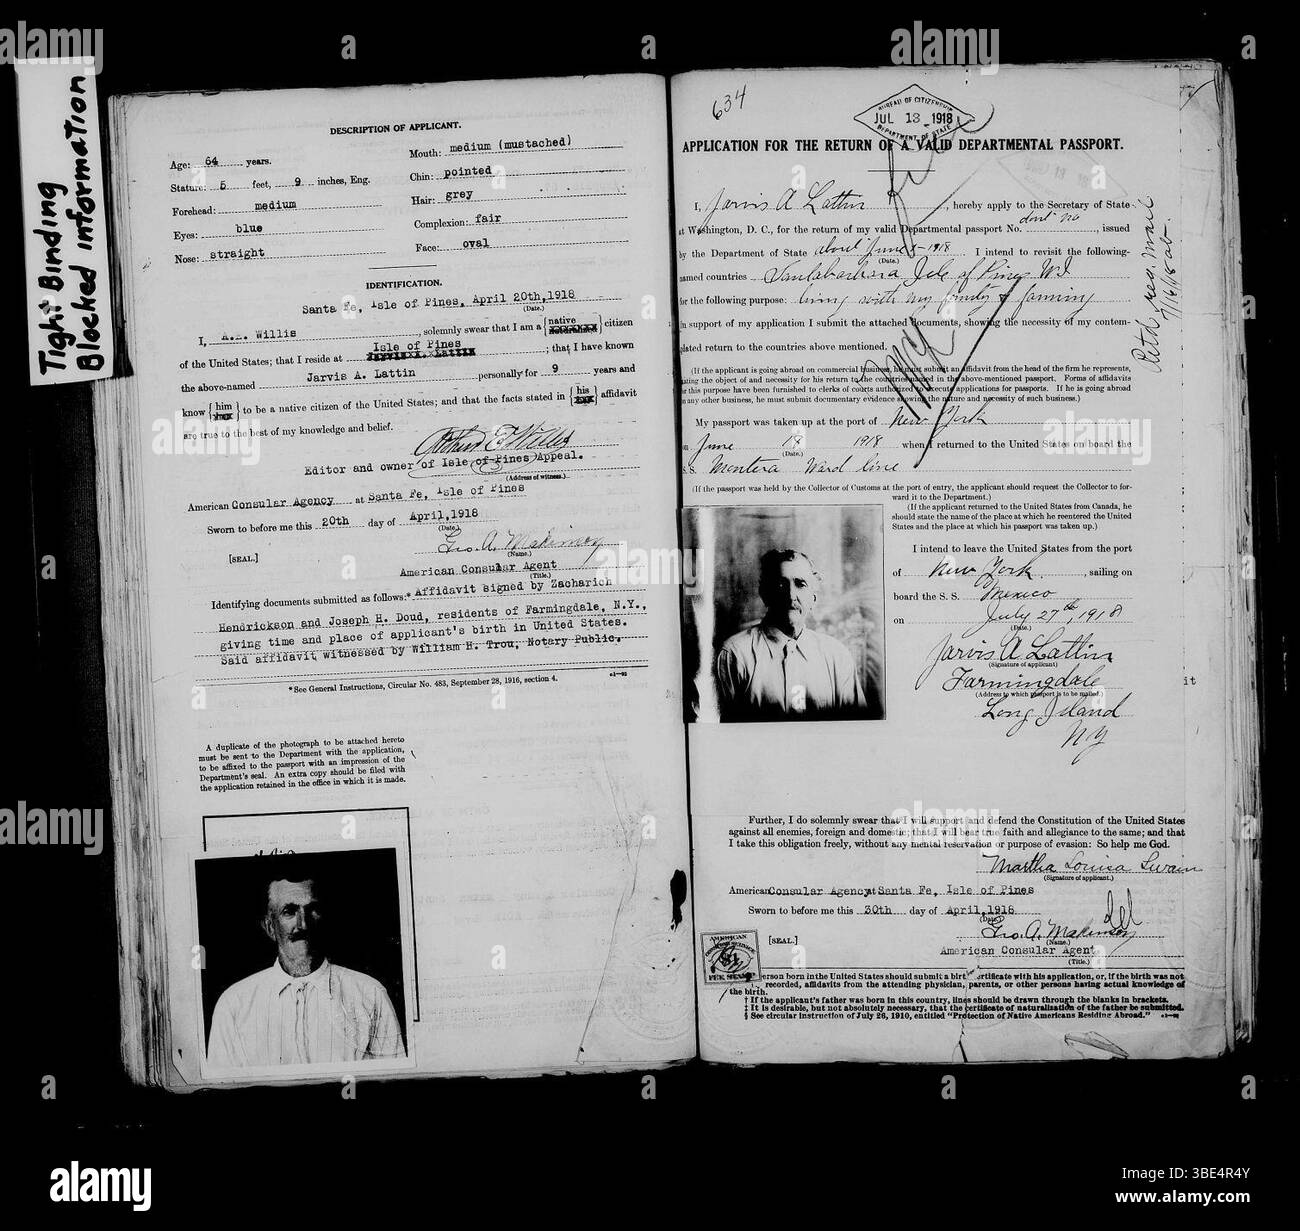 Tight Binding
Blocked information
DESCRIPTION OF APPLICANT.
Age: 64 years.
Stature: 5 feet, 9 inches, Eng.
Forehead: medium
Eyes: blue
Nose: straight
Mouth: medium (mustached)
Chin: pointed
Hair: grey
Complexion: fair
Face: oval
IDENTIFICATION.
Santa Fe, Isle of Pines, April 20th, 1918
(Date.)
I, A.E. Willis, solemnly swear that I am a {native} citizen
of the United States; that I reside at Isle of Pines; that I have known
the above-named Jarvis A. Lattin personally for 9 years and
know {him} to be a native citizen of the United States; and that the facts stated in {his} affidavit
are true to the best of my knowledge and belief.
Arthur E Willis
Editor and owner of Isle of Pines Appeal.
(Address of witness.)
American Consular Agency at Santa Fe, Isle of Pines
Sworn to before me this 20th day of April, 1918
(Date.)
[SEAL.]
Geo. A. Makinson
(Name.)
American Consular Agent
(Title.)
Identifying documents submitted as follows:* Affidavit signed by Zacharich
Hendrickson and Joseph H. Doud, residents of Farmingdale, N.Y.,
giving time and place of applicant's birth in United States.
Said affidavit witnessed by William H. Trou, Notary Public.
*See General Instructions, Circular No. 483, September 28, 1916, section 4.
A duplicate of the photograph to be attached hereto
must be sent to the Department with the application,
to be affixed to the passport with an impression of the
Department's seal. An extra copy should be filed with
the application retained in the office in which it is made.
634
BUREAU OF CITIZENSHIP
JUL 13 1918
DEPARTMENT OF STATE
APPLICATION FOR THE RETURN OF A VALID DEPARTMENTAL PASSPORT.
I, Jarvis A Lattin, hereby apply to the Secretary of State
at Washington, D. C., for the return of my valid Departmental passport No. dont no, issued
by the Department of State about June 1-1918 I intend to revisit the following-
(Date.)
named countries Santabarbara Isle of Pines W I
for the following purpose: living with my family & farming
In support of my application I submit the attached documents, showing the necessity of my contem-
plated return to the countries above mentioned.
(If the applicant is going abroad on commercial business, he must submit an affidavit from the head of the firm he represents,
stating the object and necessity for his return to the countries named in the above-mentioned passport. Forms of affidavits
for this purpose have been furnished to clerks of courts authorized to execute applications for passports. If he is going abroad
on any other business, he must submit documentary evidence showing the nature and necessity of such business.)
My passport was taken up at the port of New York
on June 18 1918 when I returned to the United States on board the
(Date.)
S. S. Montera Ward line
(If the passport was held by the Collector of Customs at the port of entry, the applicant should request the Collector to for-
ward it to the Department.)
(If the applicant returned to the United States from Canada, he
should state the name of the place at which he reentered the United
States and the place at which his passport was taken up.)
I intend to leave the United States from the port
of New York, sailing on
board the S. S. Mexico
on July 27th, 1918
(Date.)
Jarvis A Lattin
(Signature of applicant)
Farmingdale
(Address to which passport is to be mailed.)
Long Island
NY
it
Further, I do solemnly swear that I will support and defend the Constitution of the United States
against all enemies, foreign and domestic; that I will bear true faith and allegiance to the same; and that
I take this obligation freely, without any mental reservation or purpose of evasion: So help me God.
Martha Louisa Swain
(Signature of applicant.)
American Consular Agency at Santa Fe, Isle of Pines
Sworn to before me this 30th day of April, 1918
(Date.)
[SEAL.]
Geo. A. Makinson
(Name.)
American Consular Agent
(Title.)
AMERICAN
FEE STAMP
person born in the United States should submit a birth certificate with his application, or, if the birth was not
recorded, affidavits from the attending physician, parents, or other persons having actual knowledge of
the birth.
† If the applicant's father was born in this country, lines should be drawn through the blanks in brackets.
‡ It is desirable, but not absolutely necessary, that the certificate of naturalization of the father be submitted.
§ See circular instruction of July 26, 1910, entitled "Protection of Native Americans Residing Abroad."
alamy
Image ID: 3BE4R4Y
www.alamy.com